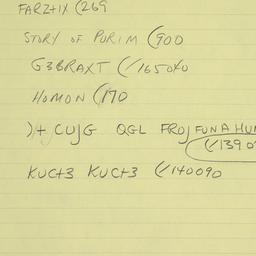 FARZ+IX (269
STORY OF PURIM (900
G3BRAXT (/165040
HOMON (170
)+ CUJG QGL FROJ FUN A HUN
(/1390
KUC+3 KUC+3 (/140090